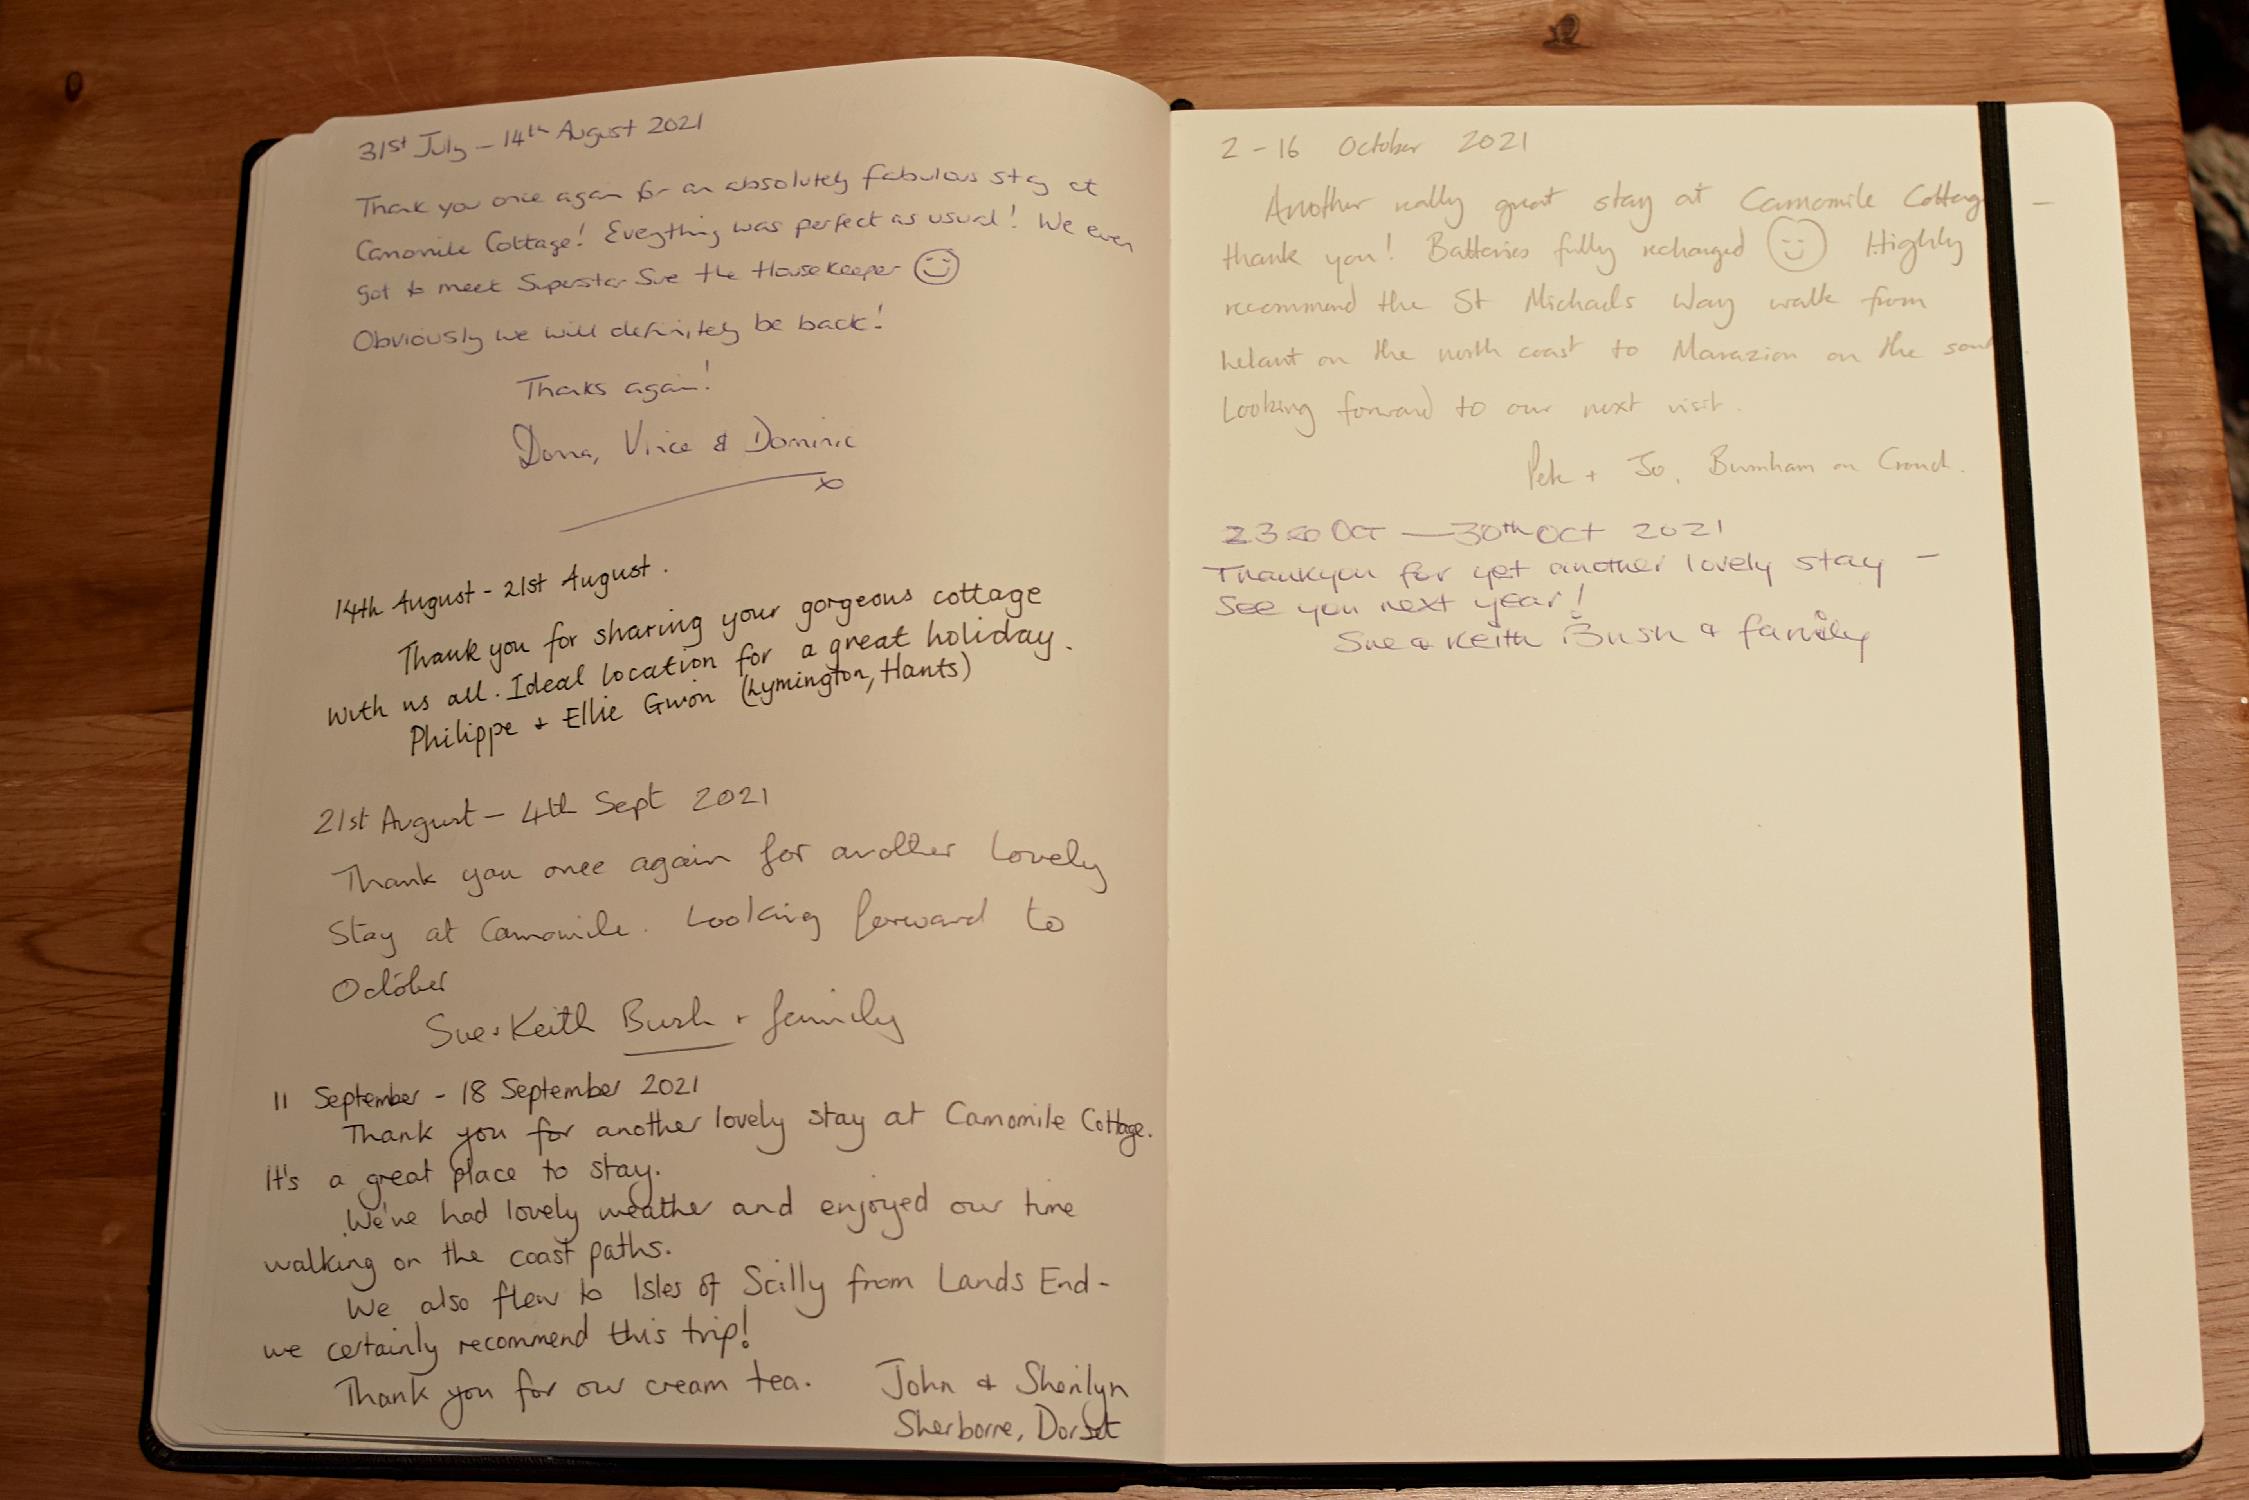 31st July - 14th August 2021
Thank you once again for an absolutely fabulous stay at
Camomile Cottage! Eveything was perfect as usual! We even
got to meet Superstar Sue the Housekeeper
Obviously we will definitely be back!
Thanks again!
Donna, Vince & Dominic
x
14th August - 21st August.
Thank you for sharing your gorgeous cottage
with us all. Ideal location for a great holiday.
Philippe + Ellie Gwon (Lymington, Hants)
21st August - 4th Sept 2021
Thank you once again for another lovely
Stay at Camomile. Looking forward to
October
Sue + Keith Bush + family
11 September - 18 September 2021
Thank you for another lovely stay at Camomile Cottage.
It's a great place to stay.
We've had lovely weather and enjoyed our time
walking on the coast paths.
We also flew to Isles of Scilly from Lands End -
we certainly recommend this trip!
Thank you for our cream tea. John & Sherilyn
Sherborne, Dorset
2 - 16 October 2021
Another really great stay at Camomile Cottage -
thank you! Batteries fully recharged Highly
recommend the St Michaels Way walk from
Lelant on the north coast to Marazion on the south
Looking forward to our next visit.
Pete + Jo, Burnham on Crouch.
23rd Oct - 30th Oct 2021
Thankyou for yet another lovely stay -
See you next year!
Sue & Keith Bush & family